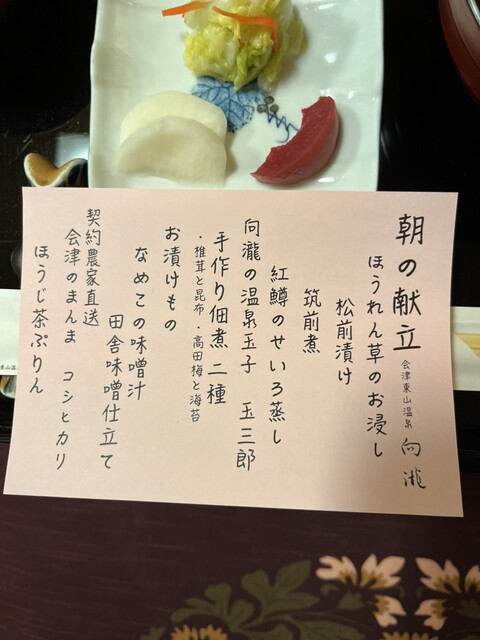 朝の献立
会津東山温泉 向瀧
ほうれん草のお浸し
松前漬け
筑前煮
紅鱒のせいろ蒸し
向瀧の温泉玉子 玉三郎
手作り佃煮 二種
・椎茸と昆布 ・高田梅と海苔
お漬けもの
なめこの味噌汁
田舎味噌仕立て
契約農家直送
会津のまんま コシヒカリ
ほうじ茶ぷりん